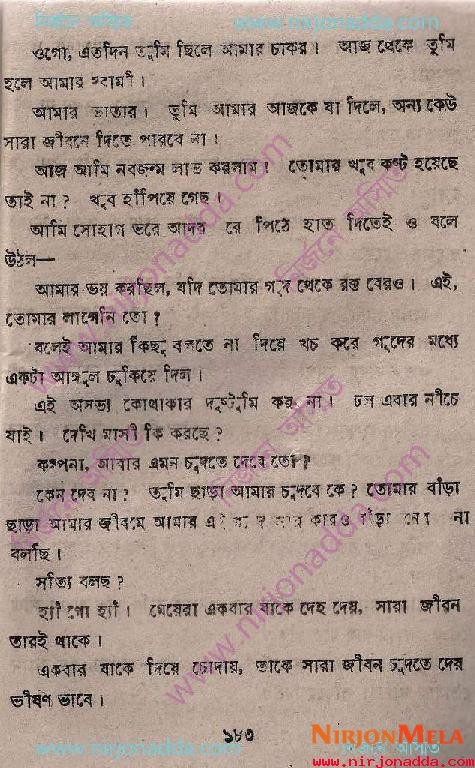 www.nirjonadda.com
ওগো, এতদিন তুমি ছিলে আমার চাকর। আজ থেকে তুমি
হলে আমার স্বামী।
আমার ভাতার। তুমি আমার আজকে যা দিলে, অন্য কেউ
সারা জীবনে দিতে পারবে না।
আজ আমি নবজন্ম লাভ করলাম। তোমার খুব কষ্ট হয়েছে
তাই না? খুব হাঁপিয়ে গেছ।
আমি সোহাগ ভরে আদর রে পিঠে হাত দিতেই ও বলে
উঠল—
আমার ভয় করছিল, যদি তোমার গুদ থেকে রক্ত বেরও। এই,
তোমার লাগেনি তো?
বলেই আমার কিছু বলতে না দিয়ে খচ করে গুদের মধ্যে
একটা আঙ্গুল ঢুকিয়ে দিল।
এই অসভ্য কোথাকার দুষ্টুমি কর না। চল এবার নীচে
যাই। দেখি মাসী কি করছে?
কল্পনা, আবার এমন চুদতে দেবে তো?
কেন দেব না? তুমি ছাড়া আমার চুদবে কে? তোমার বাঁড়া
ছাড়া আমার জীবনে আমার এই আর কারও বাঁড়া না
বলছি।
সত্যি বলছ?
হ্যাঁ গো হ্যাঁ। মেয়েরা একবার যাকে দেহ দেয়, সারা জীবন
তারই থাকে।
একবার যাকে দিয়ে চোদায়, তাকে সারা জীবন চুদতে দেয়
ভীষণ ভাবে।
১৮৩
www.nirjonadda.com
NIRJONMELA
www.nirjonadda.com